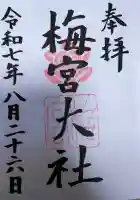 奉拝
梅宮大社
令和七年八月二十六日